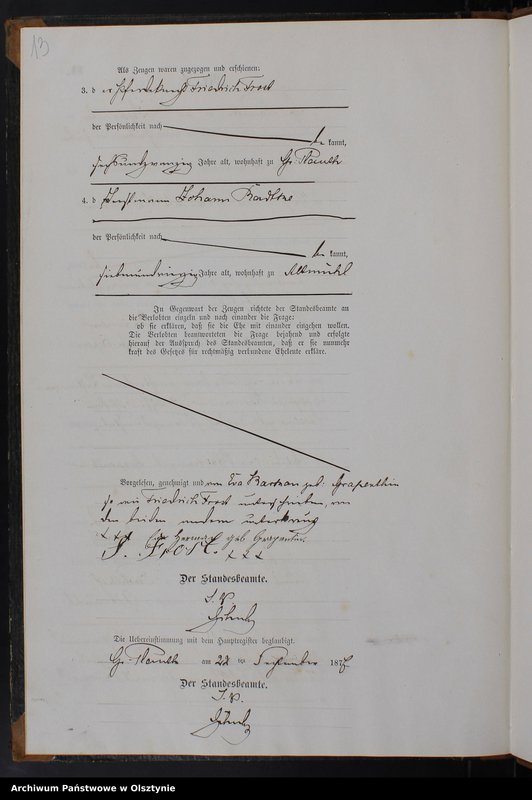 13
Als Zeugen waren zugezogen und erschienen:
3. d er Friedrich Frost
der Persönlichkeit nach
be kannt,
sechsundzwanzig Jahre alt, wohnhaft zu Gr.
4. d Johann
der Persönlichkeit nach
be kannt,
siebenundvierzig Jahre alt, wohnhaft zu Altmühl
In Gegenwart der Zeugen richtete der Standesbeamte an
die Verlobten einzeln und nach einander die Frage:
ob sie erklären, daß sie die Ehe mit einander eingehen wollen.
Die Verlobten beantworteten die Frage bejahend und erfolgte
hierauf der Ausspruch des Standesbeamten, daß er sie nunmehr
kraft des Gesetzes für rechtmäßig verbundene Eheleute erkläre.
Vorgelesen, genehmigt und von Eva geb: Grapenthin
so wie Friedrich Frost unterschrieben, von
den beiden andern
+++ geb Grapentin.
F. Frost. +++
Der Standesbeamte.
I. V.
Die Uebereinstimmung mit dem Hauptregister beglaubigt.
Gr. am 22 ten September 187
Der Standesbeamte.
I. V.
Archiwum Państwowe w Olsztynie